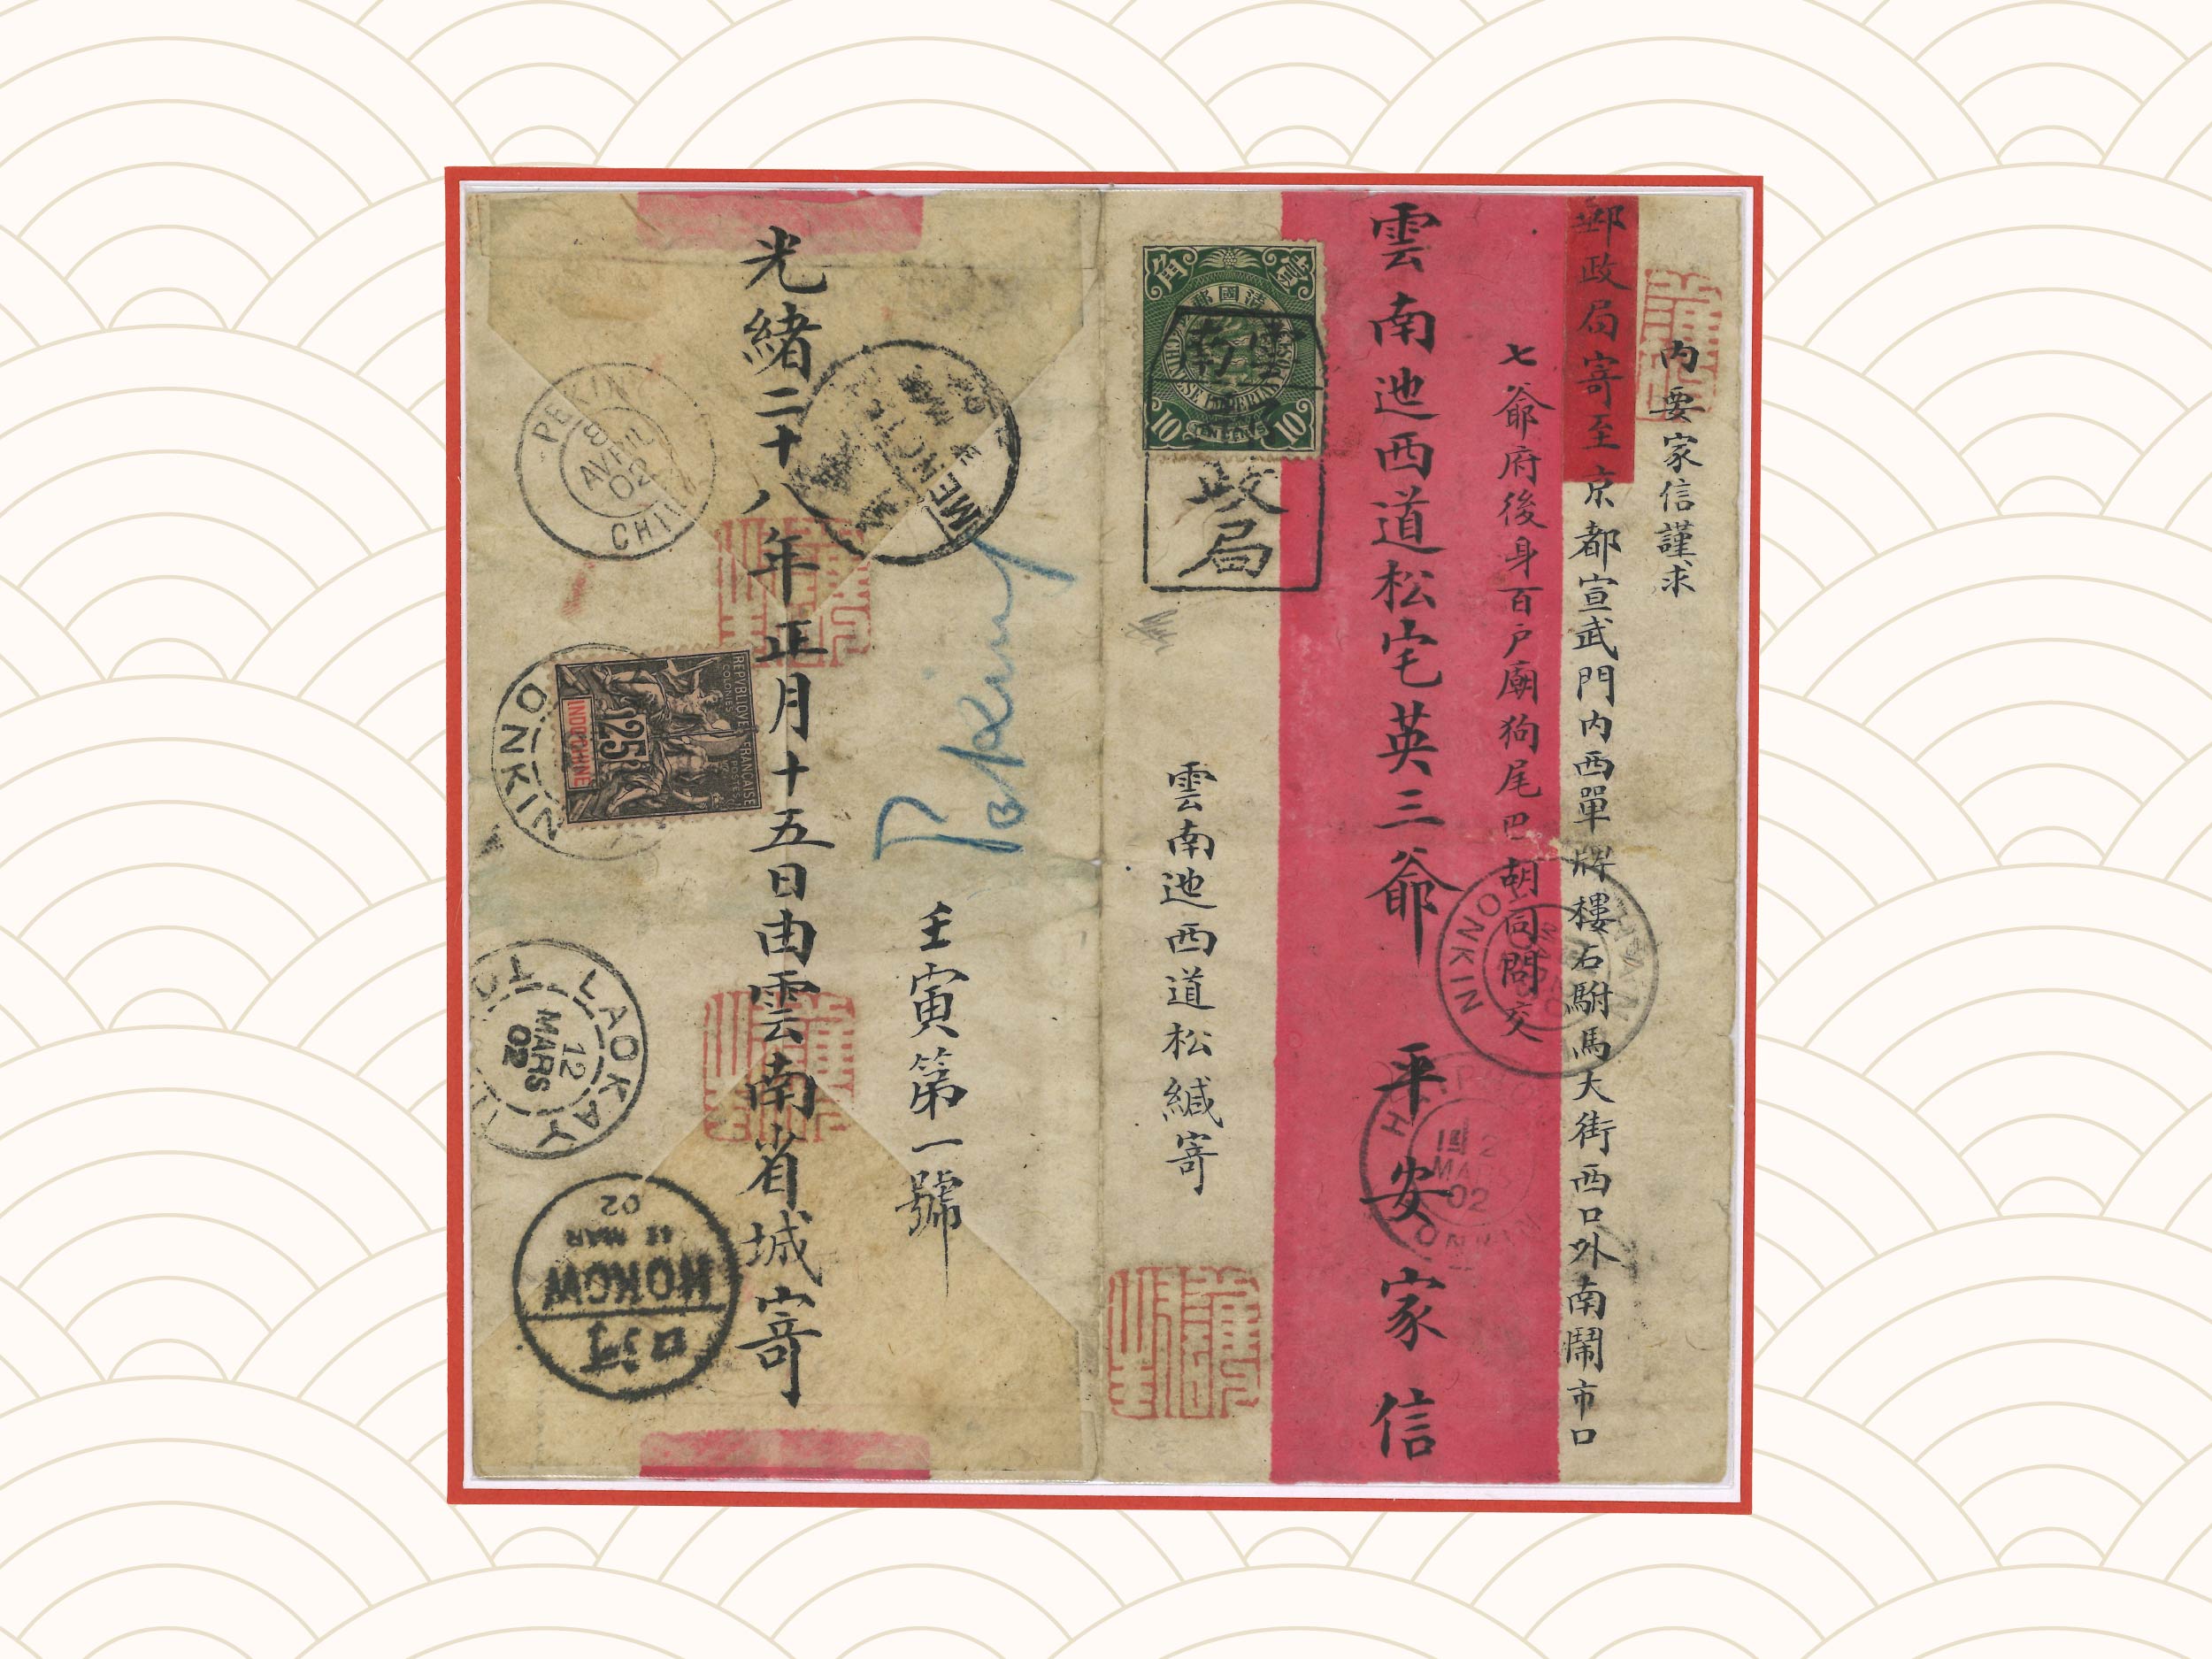 內要家信謹求
郵政局寄至京都宣武門内西單牌樓石駙馬大街西口外南鬧市口
七爺府後身百户廟狗尾巴胡同問交
雲南迤西道松宅英三爺 平安家信
雲南迤西道松緘寄
壬寅第一號
光緒二十八年正月十五日由雲南省城寄
Peking
大清國郵政
壹角
CHINESE IMPERIAL POST
10 TEN CENTS 10
雲南
郵政局
PEKING
8
AVRIL
02
CHINE
REPVBLIQVE FRANCAISE
COLONIES POSTES
25
INDO-CHINE
TONKIN
LAOKAY
12
MARS
02
河口
HOKOW
11 MAR
02
TONKIN
2
MARS
02
TONKIN